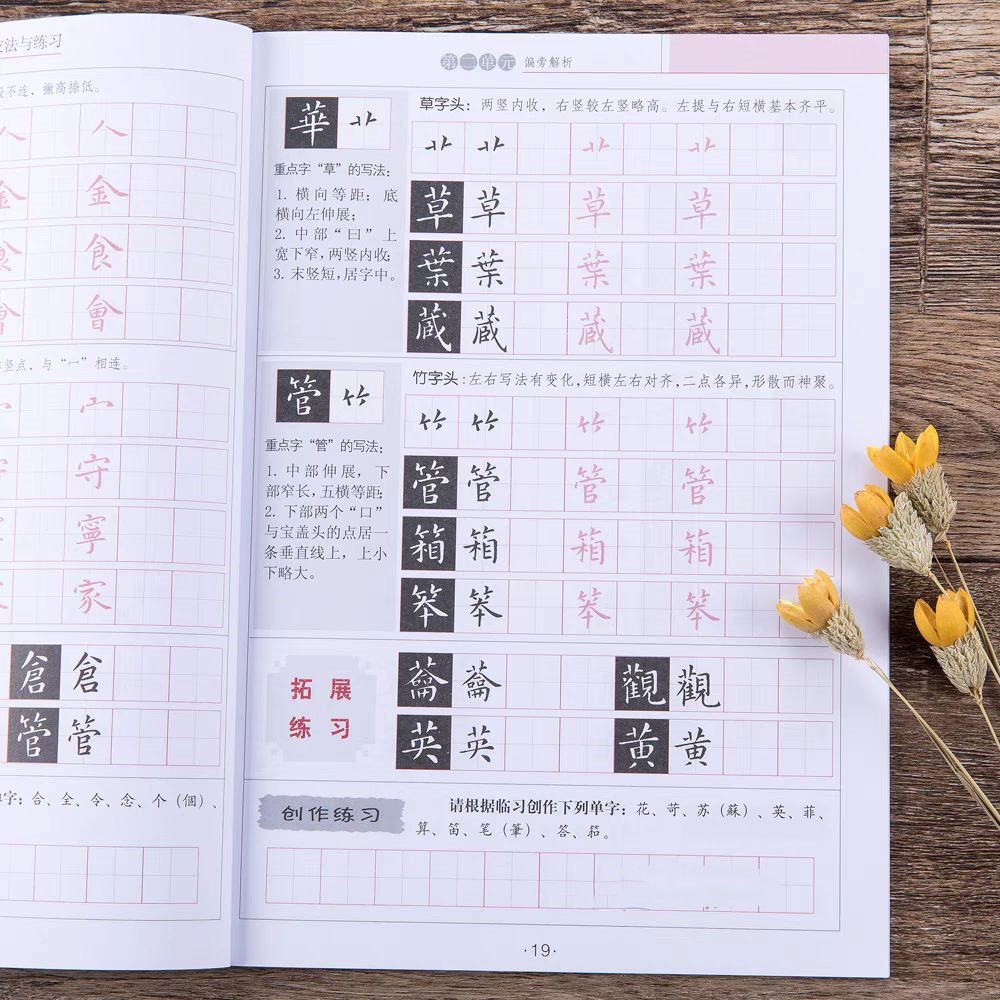 法与练习
不连，撇高捺低。
人
金 金
食 食
會 會
竖点，与“一”相连。
宀
守
寧
家
倉 倉
管 管
字：合、全、令、念、个（個）、
第二单元 偏旁解析
華 艹
重点字“草”的写法：
1. 横向等距；底
横向左伸展；
2. 中部“曰”上
宽下窄，两竖内收；
3. 末竖短，居字中。
草字头：两竖内收，右竖较左竖略高。左提与右短横基本齐平。
艹 艹 艹 艹
草 草 草 草
葉 葉 葉 葉
蔵 蔵 蔵 蔵
管 ⺮
重点字“管”的写法：
1. 中部伸展，下
部窄长，五横等距；
2. 下部两个“口”
与宝盖头的点居一
条垂直线上，上小
下略大。
竹字头：左右写法有变化，短横左右对齐，二点各异，形散而神聚。
⺮ ⺮ ⺮ ⺮
管 管 管 管
箱 箱 箱 箱
笨 笨 笨 笨
拓展
练习
觀 觀
英 英
黄 黄
创作练习
请根据临习创作下列单字：花、苛、苏（蘇）、英、菲、
算、笛、笔（筆）、答、筘。
·19·